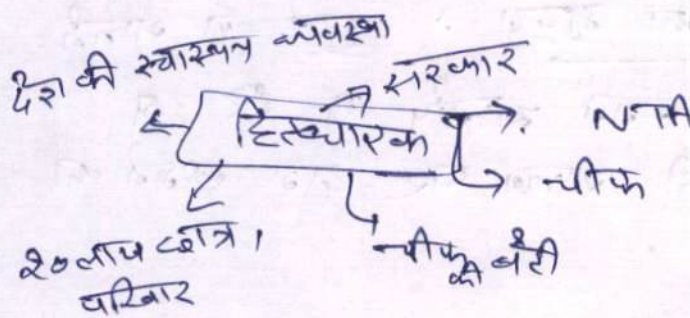 देश की स्वास्थ्य व्यवस्था
सरकार
हितधारक
NTA
चीफ
चीफ की बेटी
20 लाख छात्र,
परिवार